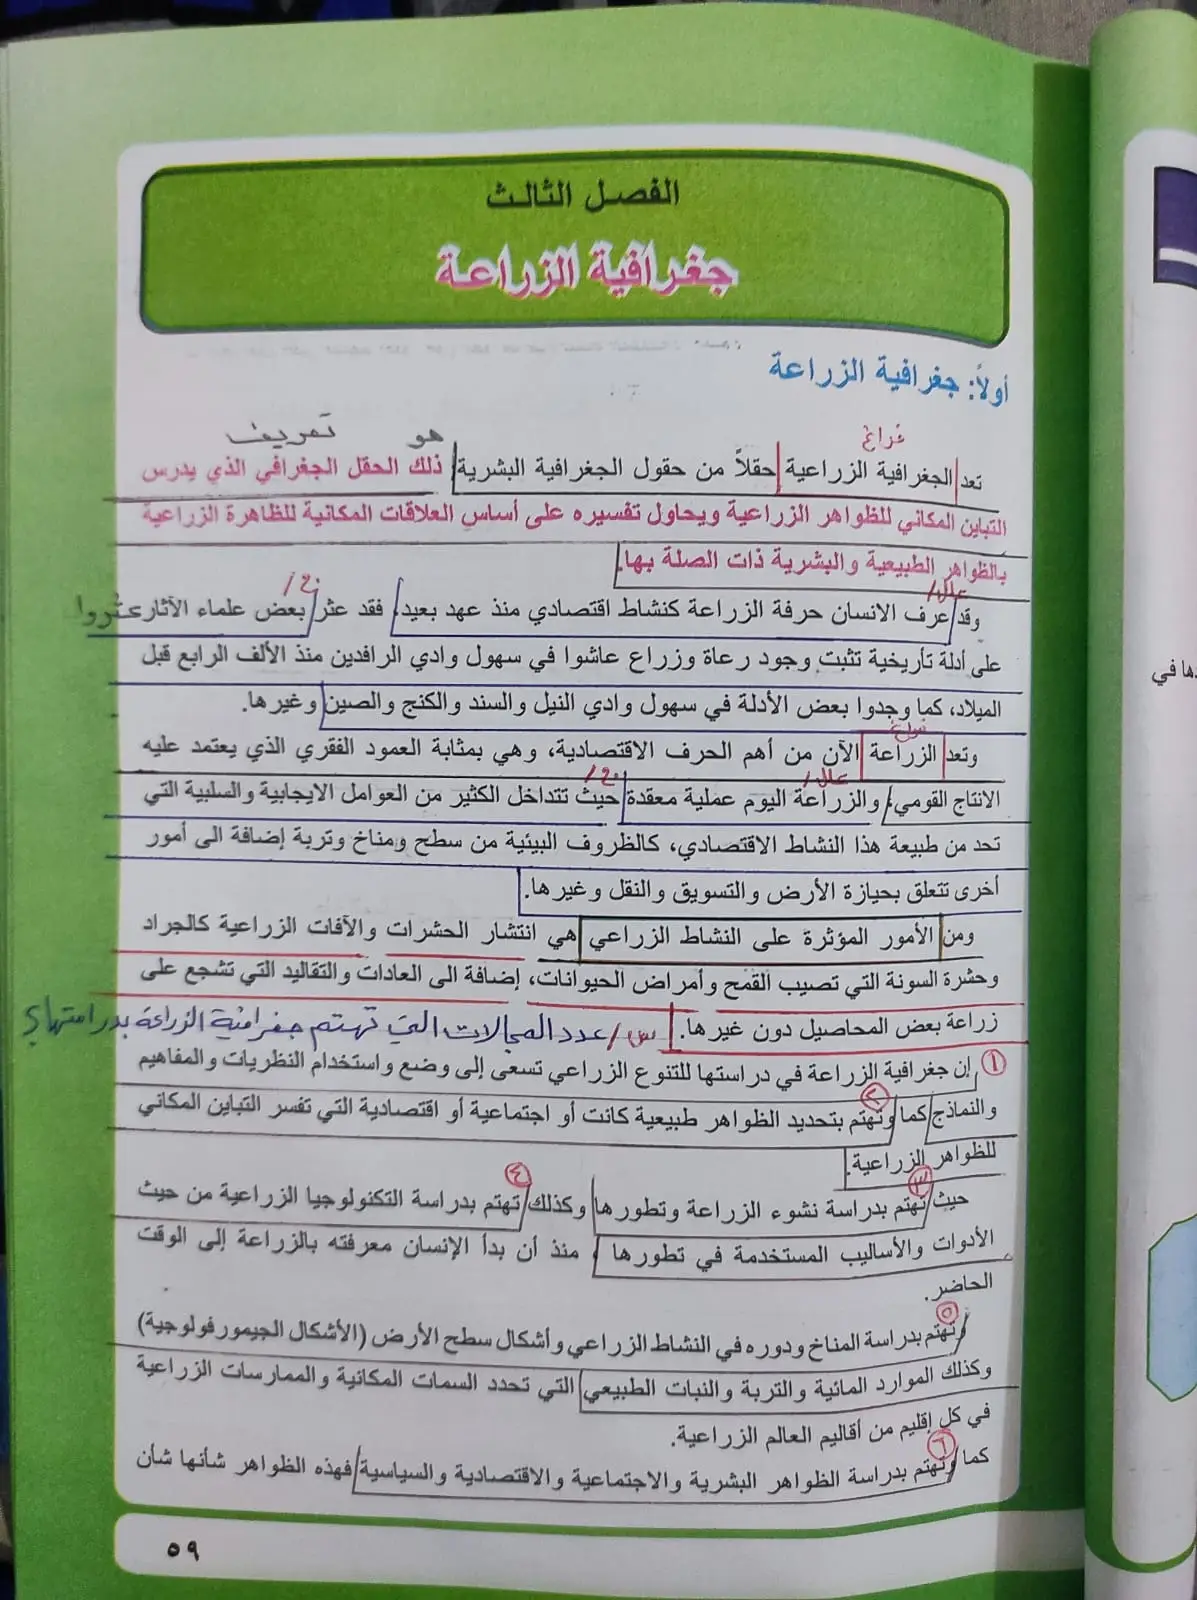 الفصل الثالث
جغرافية الزراعة
أولاً: جغرافية الزراعة
فراغ هو تعريف
تعد الجغرافية الزراعية حقلاً من حقول الجغرافية البشرية ذلك الحقل الجغرافي الذي يدرس
التباين المكاني للظواهر الزراعية ويحاول تفسيره على أساس العلاقات المكانية للظاهرة الزراعية
بالظواهر الطبيعية والبشرية ذات الصلة بها.
علل/ ج/
وقد عرف الانسان حرفة الزراعة كنشاط اقتصادي منذ عهد بعيد، فقد عثر بعض علماء الآثار عثروا
على أدلة تأريخية تثبت وجود رعاة وزراع عاشوا في سهول وادي الرافدين منذ الألف الرابع قبل
الميلاد، كما وجدوا بعض الأدلة في سهول وادي النيل والسند والكنج والصين وغيرها.
فراغ
وتعد الزراعة الآن من أهم الحرف الاقتصادية، وهي بمثابة العمود الفقري الذي يعتمد عليه
علل/ ج/
الانتاج القومي، والزراعة اليوم عملية معقدة حيث تتداخل الكثير من العوامل الايجابية والسلبية التي
تحد من طبيعة هذا النشاط الاقتصادي، كالظروف البيئية من سطح ومناخ وتربة إضافة الى أمور
أخرى تتعلق بحيازة الأرض والتسويق والنقل وغيرها.
ومن الأمور المؤثرة على النشاط الزراعي هي انتشار الحشرات والآفات الزراعية كالجراد
وحشرة السونة التي تصيب القمح وأمراض الحيوانات، إضافة الى العادات والتقاليد التي تشجع على
زراعة بعض المحاصيل دون غيرها. س/ عدد المجالات التي تهتم جغرافية الزراعة بدراستها؟
١ إن جغرافية الزراعة في دراستها للتنوع الزراعي تسعى إلى وضع واستخدام النظريات والمفاهيم
٢
والنماذج كما وتهتم بتحديد الظواهر طبيعية كانت أو اجتماعية أو اقتصادية التي تفسر التباين المكاني
للظواهر الزراعية.
٣ ٤
حيث تهتم بدراسة نشوء الزراعة وتطورها وكذلك تهتم بدراسة التكنولوجيا الزراعية من حيث
الأدوات والأساليب المستخدمة في تطورها ، منذ أن بدأ الإنسان معرفته بالزراعة إلى الوقت
الحاضر.
٥
وتهتم بدراسة المناخ ودوره في النشاط الزراعي وأشكال سطح الأرض (الأشكال الجيمورفولوجية)
وكذلك الموارد المائية والتربة والنبات الطبيعي التي تحدد السمات المكانية والممارسات الزراعية
في كل إقليم من أقاليم العالم الزراعية.
٦
كما وتهتم بدراسة الظواهر البشرية والاجتماعية والاقتصادية والسياسية فهذه الظواهر شأنها شأن
٥٩
ها في